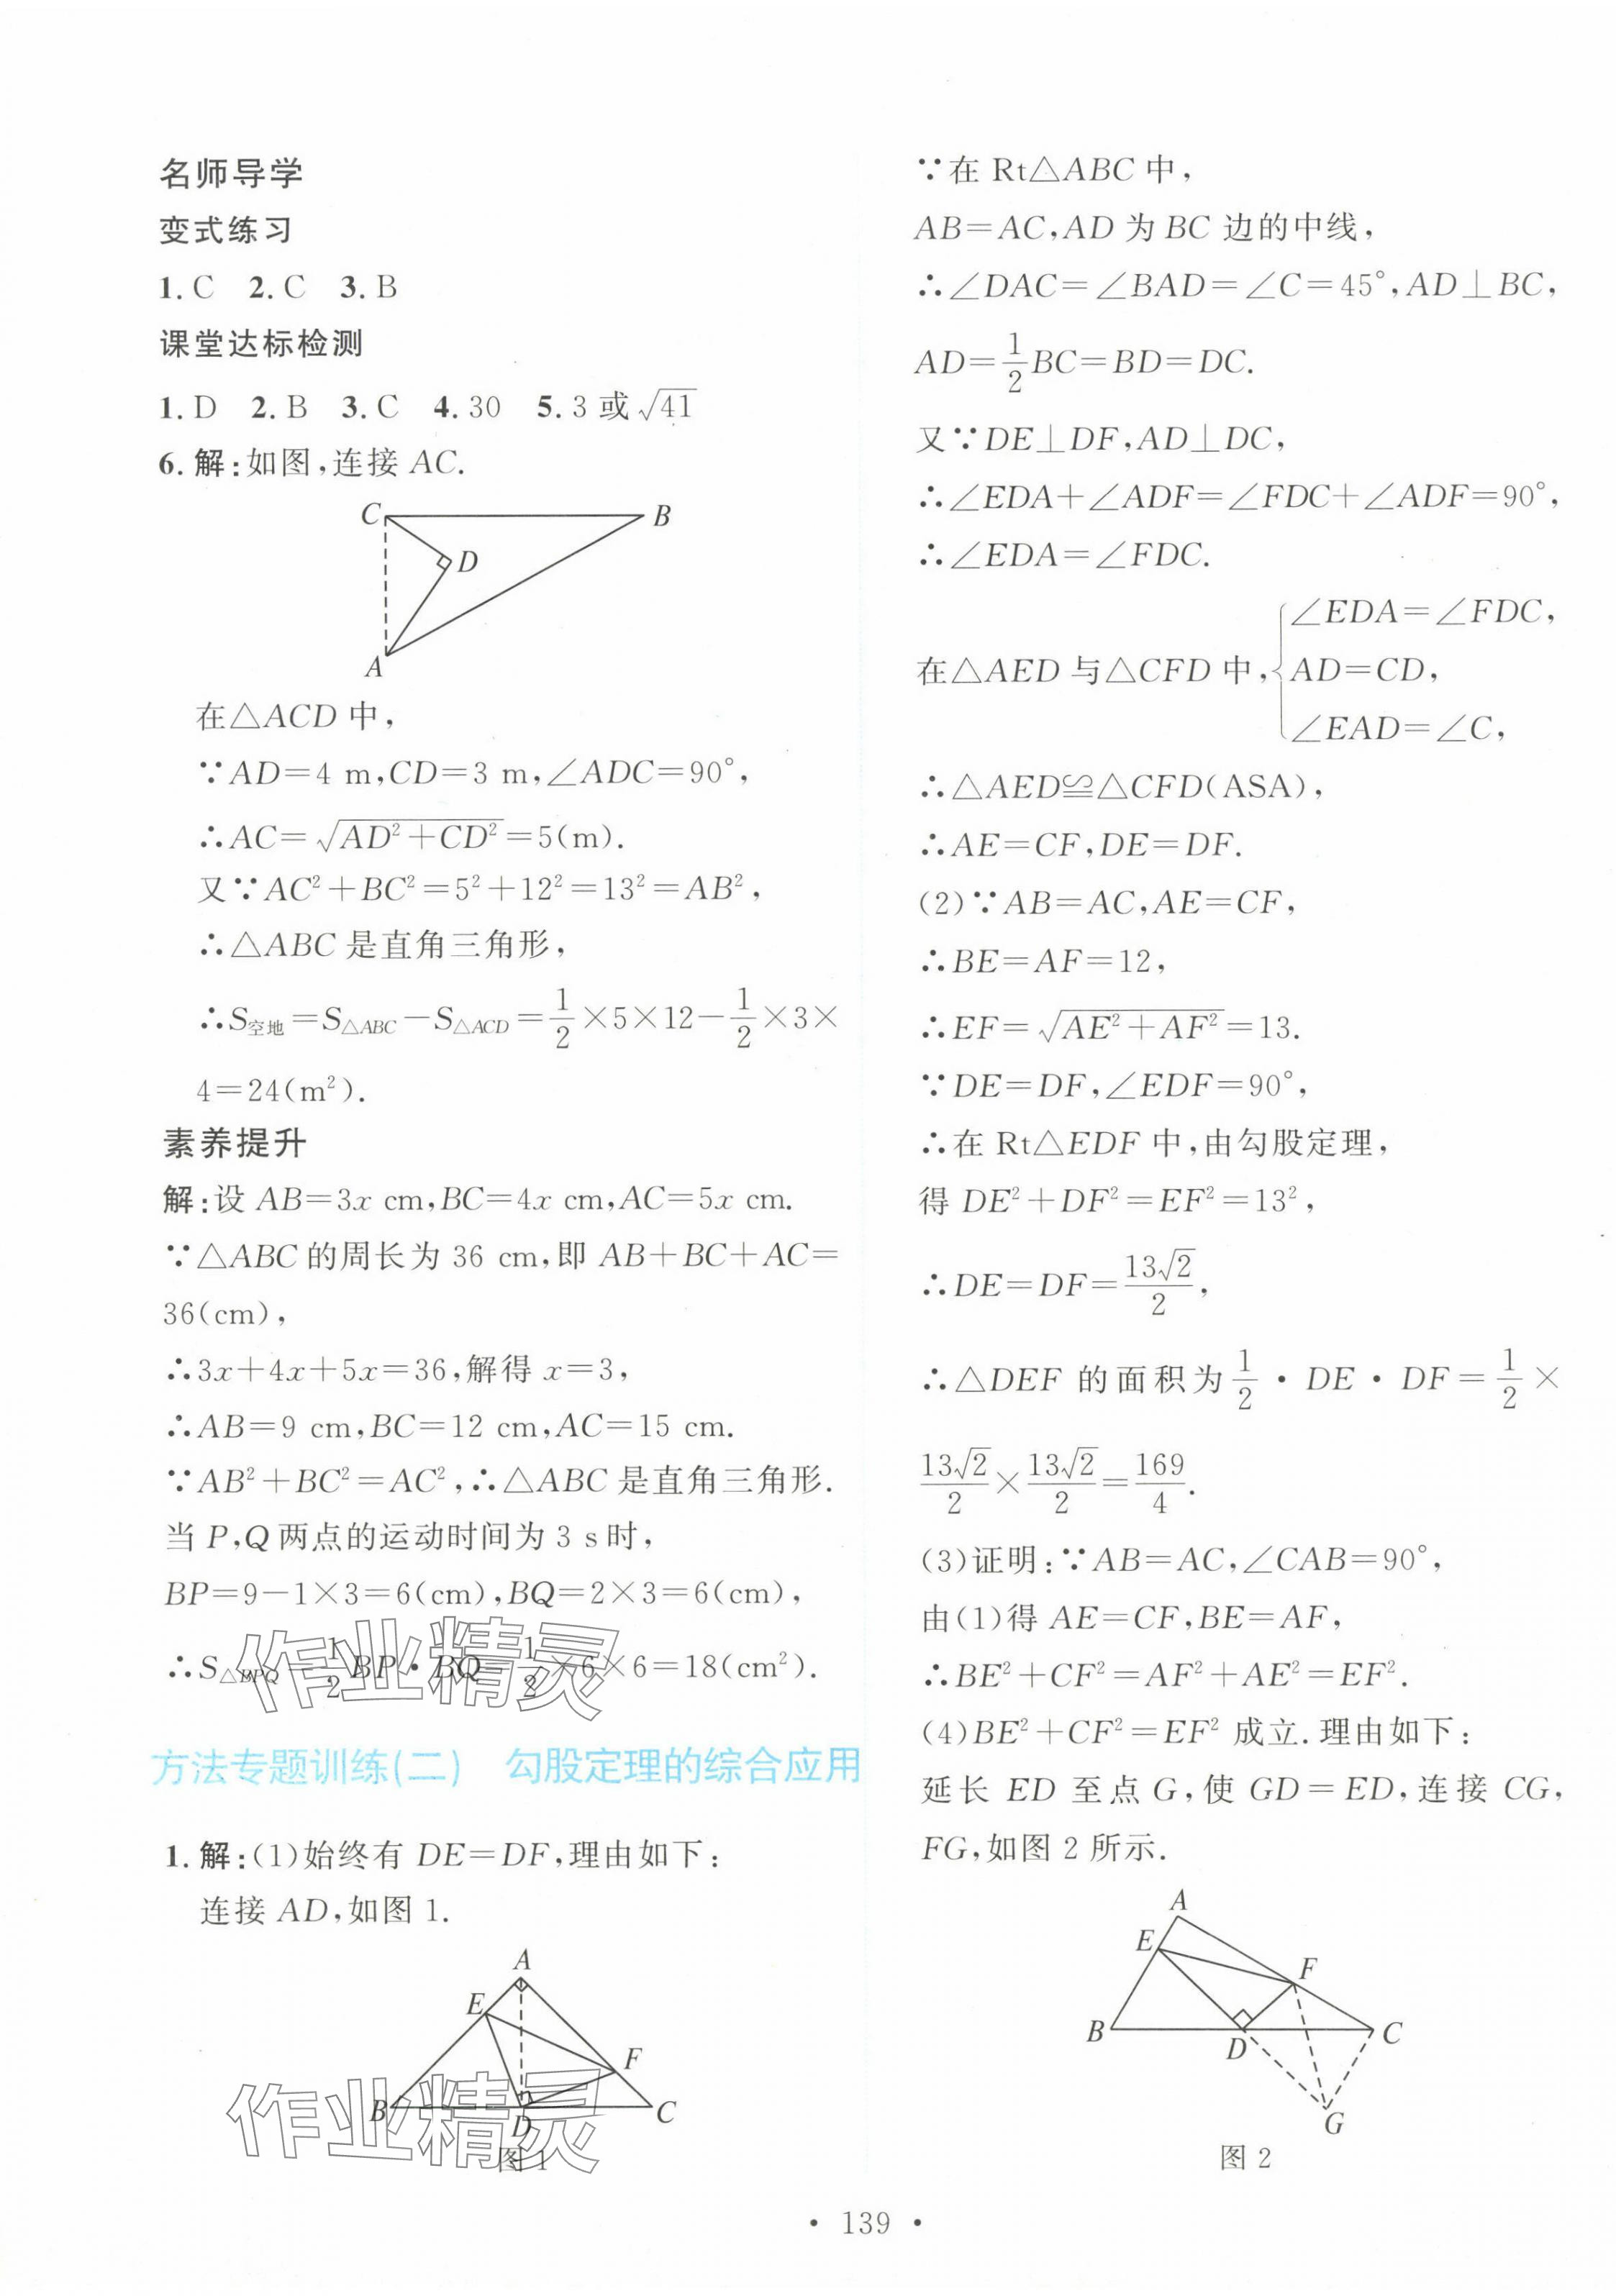 名师导学
变式练习
1. C 2. C 3. B
课堂达标检测
1. D 2. B 3. C 4. 30 5. 3 或 √41
6. 解:如图,连接 AC.
C
B
D
A
在△ACD 中,
∵AD=4 m,CD=3 m,∠ADC=90°,
∴AC=√(AD²+CD²)=5(m).
又∵AC²+BC²=5²+12²=13²=AB²,
∴△ABC 是直角三角形,
∴S空地=S△ABC-S△ACD=1/2×5×12-1/2×3×
4=24(m²).
素养提升
解:设 AB=3x cm,BC=4x cm,AC=5x cm.
∵△ABC 的周长为 36 cm,即 AB+BC+AC=
36(cm),
∴3x+4x+5x=36,解得 x=3,
∴AB=9 cm,BC=12 cm,AC=15 cm.
∵AB²+BC²=AC²,∴△ABC 是直角三角形.
当 P,Q 两点的运动时间为 3 s 时,
BP=9-1×3=6(cm),BQ=2×3=6(cm),
∴S△BPQ=1/2 BP·BQ=1/2×6×6=18(cm²).
作业精灵
方法专题训练(二) 勾股定理的综合应用
1. 解:(1)始终有 DE=DF,理由如下:
连接 AD,如图 1.
A
E
F
B
D
C
图 1
作业精灵
∵在 Rt△ABC 中,
AB=AC,AD 为 BC 边的中线,
∴∠DAC=∠BAD=∠C=45°,AD⊥BC,
AD=1/2 BC=BD=DC.
又∵DE⊥DF,AD⊥DC,
∴∠EDA+∠ADF=∠FDC+∠ADF=90°,
∴∠EDA=∠FDC.
∠EDA=∠FDC,
在△AED 与△CFD 中,{AD=CD,
∠EAD=∠C,
∴△AED≌△CFD(ASA),
∴AE=CF,DE=DF.
(2)∵AB=AC,AE=CF,
∴BE=AF=12,
∴EF=√(AE²+AF²)=13.
∵DE=DF,∠EDF=90°,
∴在 Rt△EDF 中,由勾股定理,
得 DE²+DF²=EF²=13²,
∴DE=DF=13√2/2,
∴△DEF 的面积为 1/2·DE·DF=1/2×
13√2/2×13√2/2=169/4.
(3)证明:∵AB=AC,∠CAB=90°,
由(1)得 AE=CF,BE=AF,
∴BE²+CF²=AF²+AE²=EF².
(4)BE²+CF²=EF² 成立.理由如下:
延长 ED 至点 G,使 GD=ED,连接 CG,
FG,如图 2 所示.
A
E
F
B
D
C
G
图 2
· 139 ·